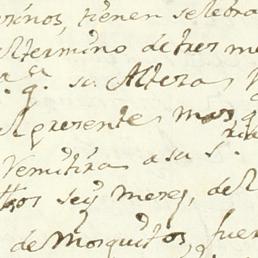 tienen selebra
el termino de tres me
q.e su Alteza
el presente mas
Remitira a su S.
seys meses, de
de Mosquitos, fue